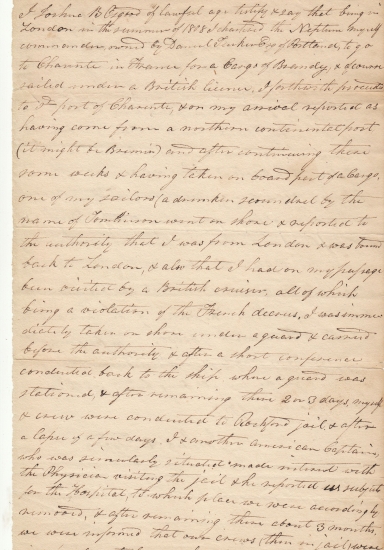 I Joshua B Osgood of lawful age testify & say that being in
London in the summer of 1808 I chartered the Neptune myself
commander owned by Samuel Tucker Esq of Portland, to go
to Charente in France for a Cargo of Brandy, & of course
sailed under a British licence, I forthwith proceeded
to sd port of Charente, & on my arrival reported as
having come from a northern continental port
(it might be Bremin) and after continuing there
some weeks & having taken on board part of a Cargo,
one of my sailors (a drunken scoundrel by the
name of Tomlinson went on shore & reported to
the authority that I was from London & was bound
back to London, & also that I had on my passage
been visited by a British cruiser, all of which
being a violation of the French decrees, I was imme
diately taken on shore under a guard & carried
before the authority & after a short conference
conducted back to the ship where a guard was
stationed, & after remaining there 2 or 3 days, myself
& crew were conducted to Rochford jail, & after
a lapse of a few days. I & another American Captain,
who was similarly situated made interest with
the Physician visiting the jail & he reported us subjects
for the Hospital, to which place we were accordingly
removed, & after remaining there about 3 months,
we were informed that our crews (then in jail) were